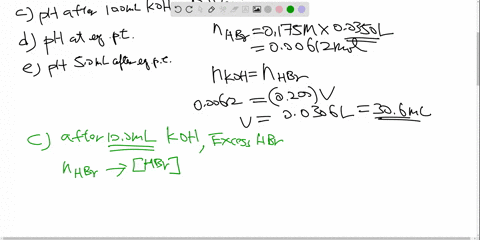 c) pH after 10.0mL KOH
d) pH at eq. pt.
e) pH 5.0mL after eq. pt.
nHBr = 0.175M x 0.0350L
= 0.00612 mol
nKOH = nHBr
0.00612 = (0.200) V
V = 0.0306L = 30.6mL
c) after 10.0mL KOH, Excess HBr
nHBr → [HBr]